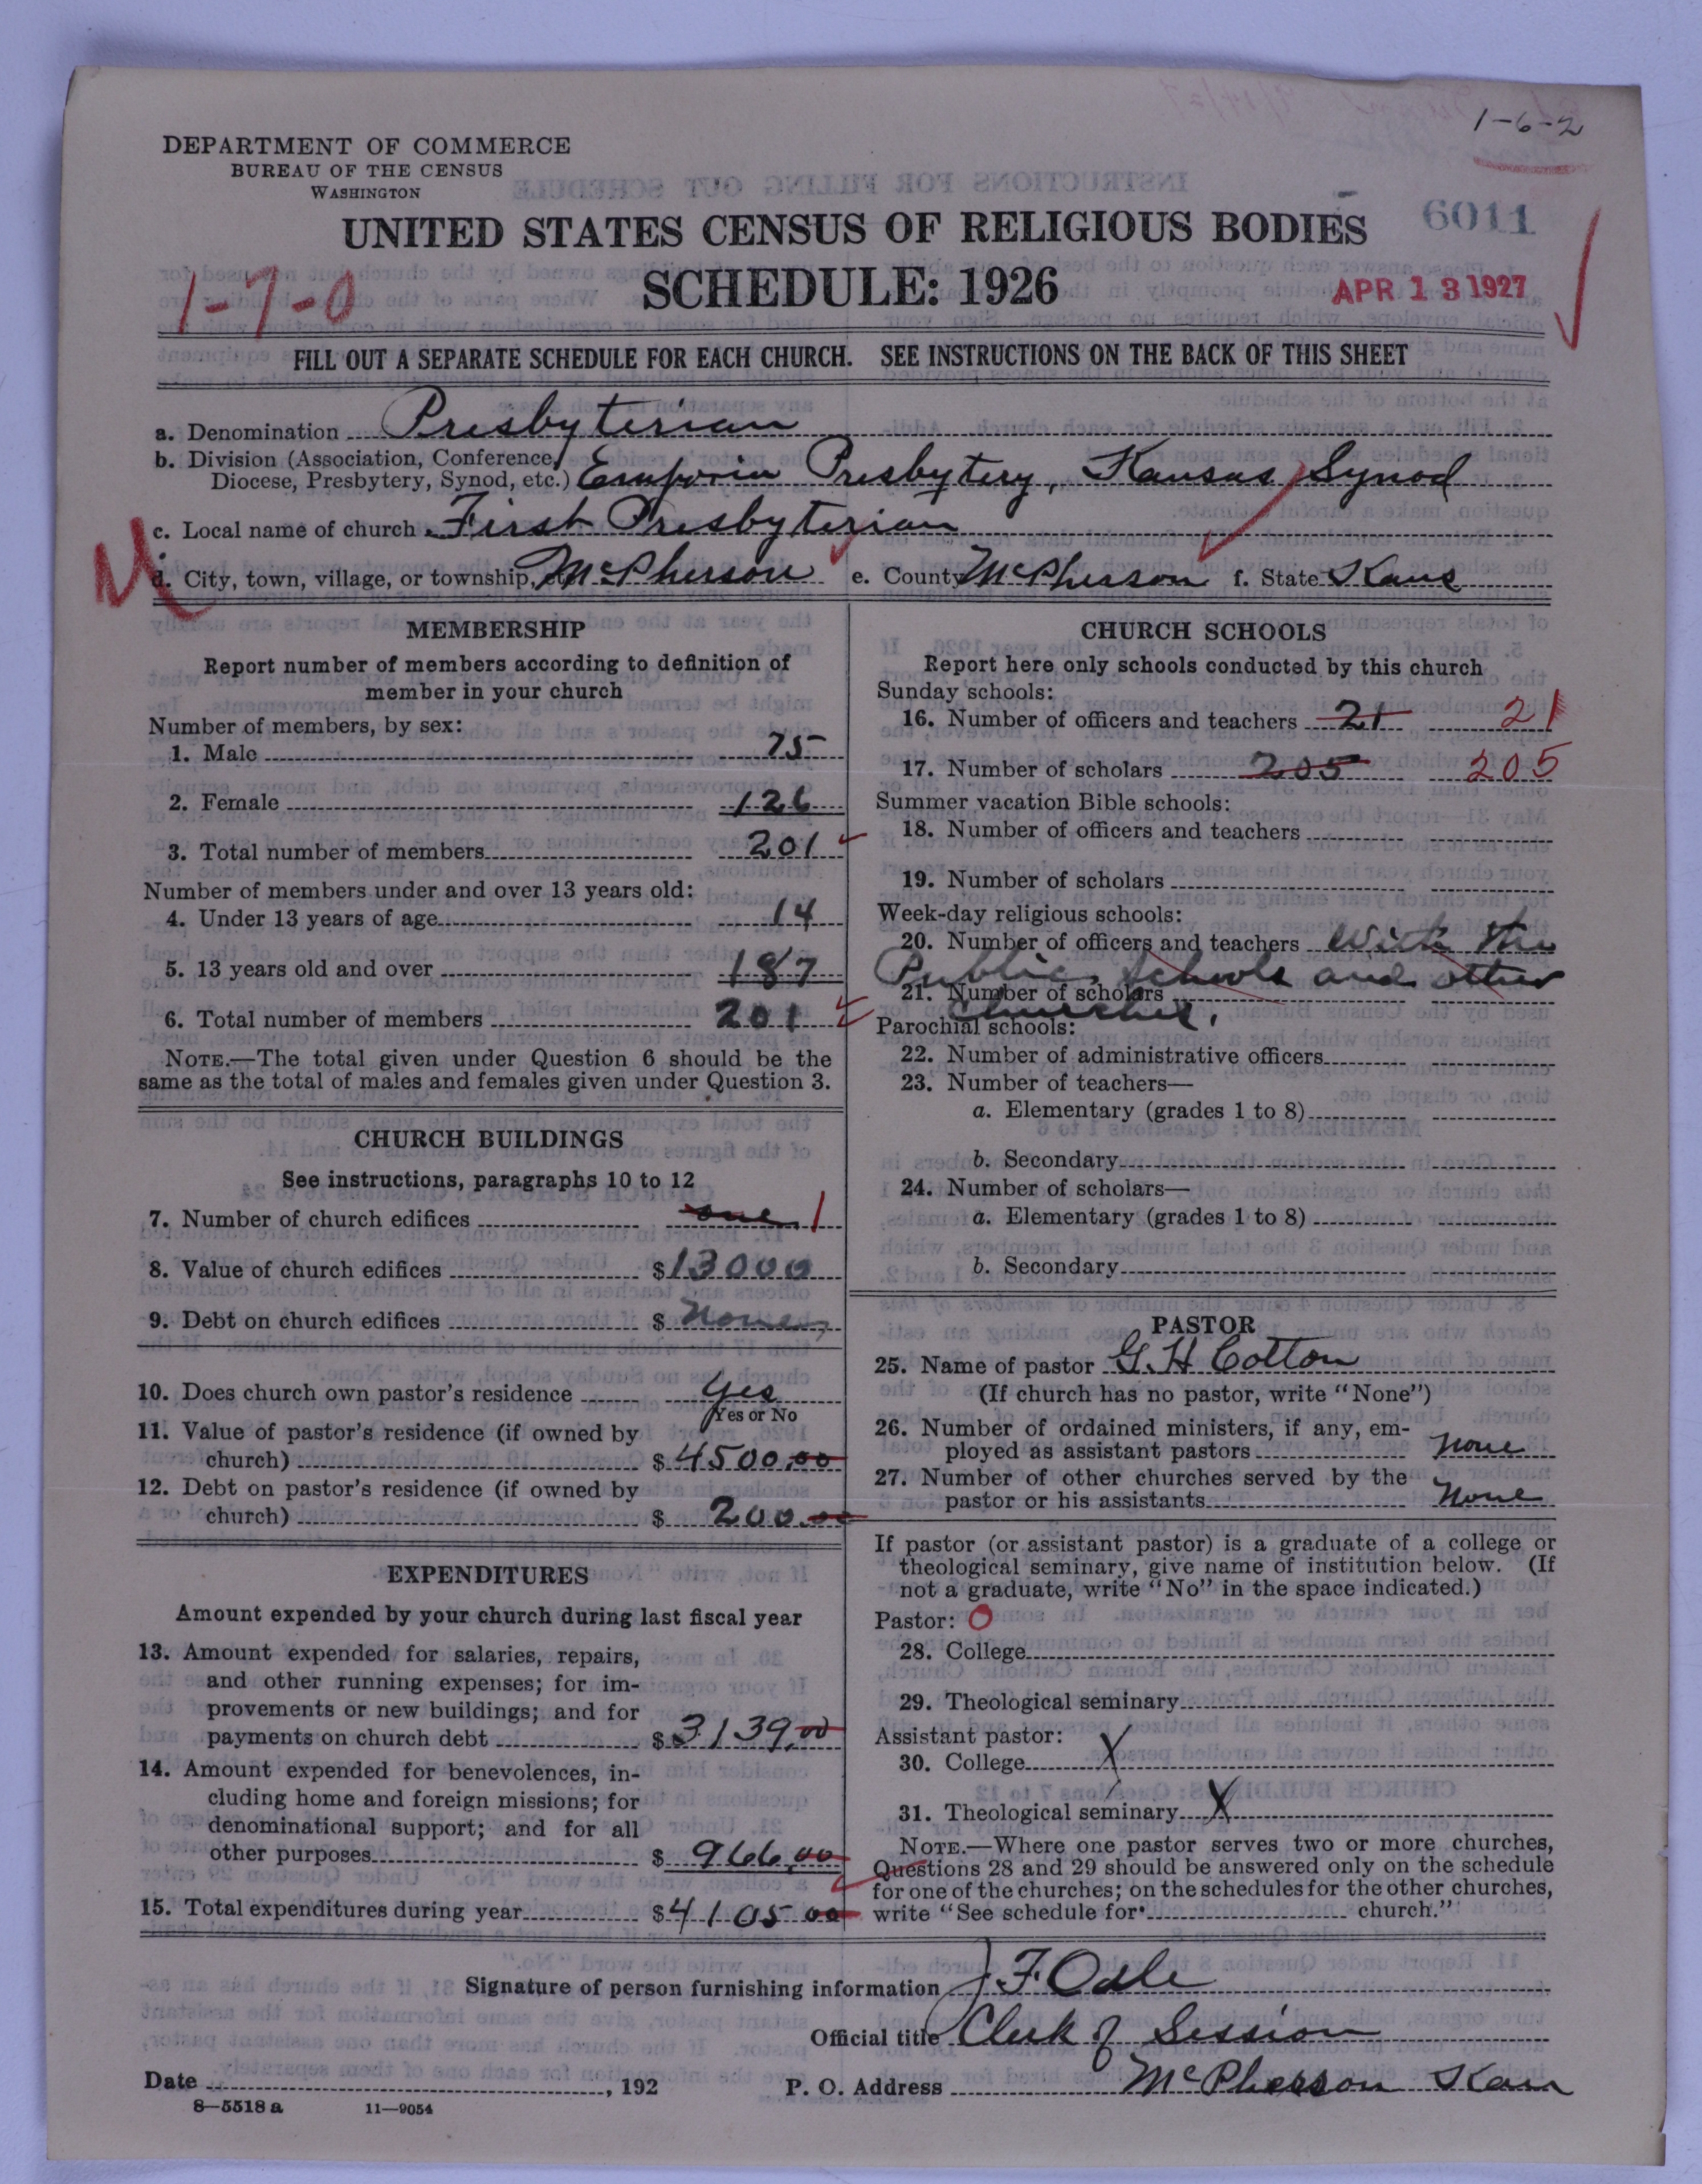 1-6-2
DEPARTMENT OF COMMERCE
BUREAU OF THE CENSUS
WASHINGTON
UNITED STATES CENSUS OF RELIGIOUS BODIES
6011
1-7-0
SCHEDULE: 1926
APR 13 1927
FILL OUT A SEPARATE SCHEDULE FOR EACH CHURCH. SEE INSTRUCTIONS ON THE BACK OF THIS SHEET
a. Denomination Presbyterian
b. Division (Association, Conference,
Diocese, Presbytery, Synod, etc.) Emporia Presbytery, Kansas Synod
c. Local name of church First Presbyterian
d. City, town, village, or township, etc. McPherson e. County McPherson f. State Kans
MEMBERSHIP
Report number of members according to definition of
member in your church
Number of members, by sex:
1. Male 75
2. Female 126
3. Total number of members 201
Number of members under and over 13 years old:
4. Under 13 years of age 14
5. 13 years old and over 187
6. Total number of members 201
NOTE.—The total given under Question 6 should be the
same as the total of males and females given under Question 3.
CHURCH BUILDINGS
See instructions, paragraphs 10 to 12
7. Number of church edifices one 1
8. Value of church edifices $13000
9. Debt on church edifices $ None
10. Does church own pastor's residence Yes
Yes or No
11. Value of pastor's residence (if owned by
church) $4500.00
12. Debt on pastor's residence (if owned by
church) $ 200.00
EXPENDITURES
Amount expended by your church during last fiscal year
13. Amount expended for salaries, repairs,
and other running expenses; for im-
provements or new buildings; and for
payments on church debt $3139.00
14. Amount expended for benevolences, in-
cluding home and foreign missions; for
denominational support; and for all
other purposes $ 966.00
15. Total expenditures during year $4105 00
CHURCH SCHOOLS
Report here only schools conducted by this church
Sunday schools:
16. Number of officers and teachers 21 21
17. Number of scholars 205 205
Summer vacation Bible schools:
18. Number of officers and teachers
19. Number of scholars
Week-day religious schools:
20. Number of officers and teachers With the
Public Schools and other
21. Number of scholars
Churches.
Parochial schools:
22. Number of administrative officers
23. Number of teachers—
a. Elementary (grades 1 to 8)
b. Secondary
24. Number of scholars—
a. Elementary (grades 1 to 8)
b. Secondary
PASTOR
25. Name of pastor G. H Cotton
(If church has no pastor, write "None")
26. Number of ordained ministers, if any, em-
ployed as assistant pastors none
27. Number of other churches served by the
pastor or his assistants None
If pastor (or assistant pastor) is a graduate of a college or
theological seminary, give name of institution below. (If
not a graduate, write "No" in the space indicated.)
Pastor: O
28. College
29. Theological seminary
Assistant pastor:
30. College X
31. Theological seminary X
NOTE.—Where one pastor serves two or more churches,
Questions 28 and 29 should be answered only on the schedule
for one of the churches; on the schedules for the other churches,
write "See schedule for church."
Signature of person furnishing information J. F. Odle
Official title Clerk of Session
Date , 192
P. O. Address McPherson Kan
8—5518 a 11—9054